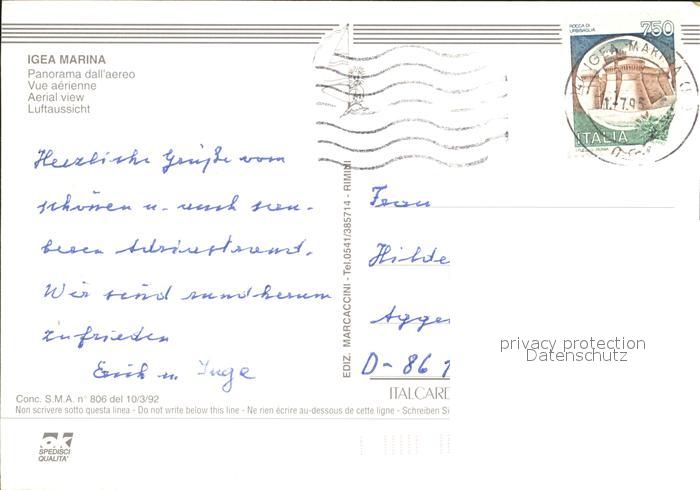 IGEA MARINA
Panorama dall'aereo
Vue aérienne
Aerial view
Luftaussicht
ROCCA DI
URBISAGLIA
750
IGEA MARINA
ITALIA
Herzliche Grüße vom
schönen u. auch sau-
beren Adriastrand.
Wir sind rundherum
zufrieden
Erich u. Inge
EDIZ. MARCACCINI - Tel.0541/385714 - RIMINI
Frau
Hilde
Agge
D-86
privacy protection
Datenschutz
ITALCARD
Conc. S.M.A. n° 806 del 10/3/92
Non scrivere sotto questa linea - Do not write below this line - Ne rien écrire au-dessous de cette ligne - Schreiben Si
SPEDISCI
QUALITA'